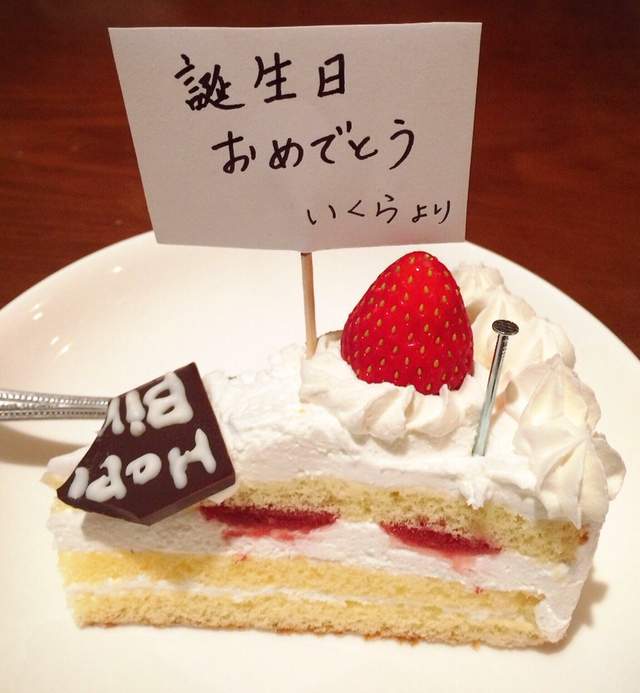 誕生日
おめでとう
いくらより
Happ
Bir